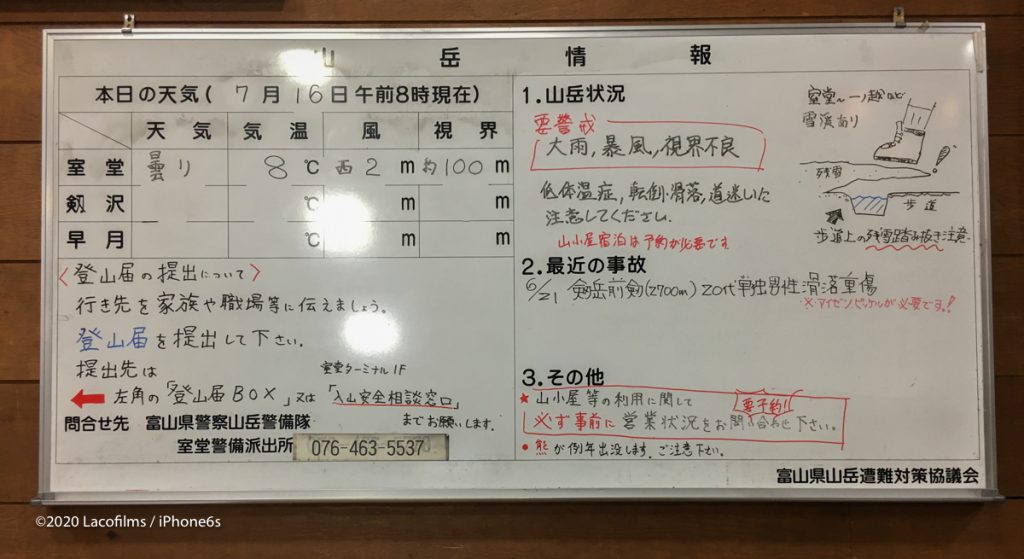 山岳情報
本日の天気（7月16日午前8時現在）
天気 気温 風 視界
室堂 曇り 8℃ 西2m 約100m
剱沢 ℃ m m
早月 ℃ m m
〈登山届の提出について〉
行き先を家族や職場等に伝えましょう。
登山届を提出して下さい。
提出先は
室堂ターミナル1F
← 左角の「登山届BOX」又は「入山安全相談窓口」
までお願いします。
問合せ先 富山県警察山岳警備隊
室堂警備派出所 076-463-5537
1.山岳状況
要警戒
大雨,暴風,視界不良
低体温症,転倒・滑落,道迷いに
注意してください.
山小屋宿泊は予約が必要です
室堂〜一ノ越など
雪渓あり
残雪
歩道
歩道上の残雪踏み抜き注意
2.最近の事故
6/21 剱岳前剱(2700m) 20代単独男性滑落重傷
※アイゼンピッケルが必要です!!
3.その他
★山小屋等の利用に関して
要予約!!
必ず事前に営業状況をお問い合わせ下さい。
・熊が例年出没します.ご注意下さい。
富山県山岳遭難対策協議会
©2020 Lacofilms / iPhone6s